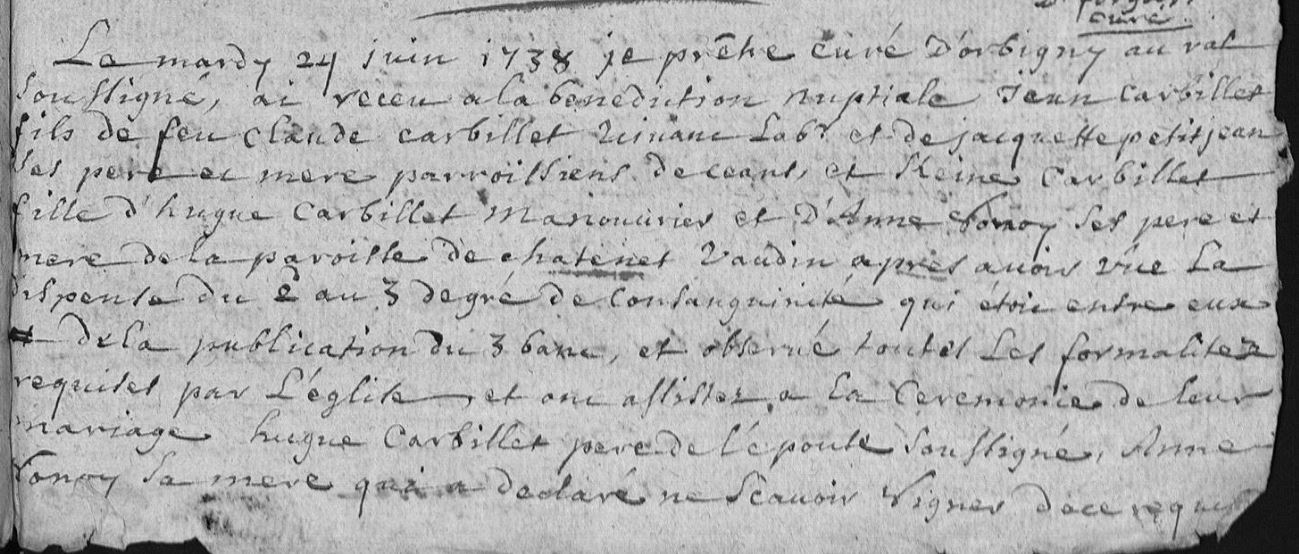 curé.
Le mardy 24 juin 1738 je prêtre curé D'orbigny au val
soussigné, ai receu a la benediction nuptiale Jean Carbillet
fils de feu Claude Carbillet vivant Labr. et de jacquette petitjean
ses pere et mere parroissiens de ceans, et Reine Carbillet
fille d'hugue Carbillet Manouvrier et D'Anne ses pere et
mere de la paroisse de chatenet Vaudin après avoir vüe La
dispense du 2 au 3 degré de consanguinité qui étoit entre eux
de la publication du 3 banc, et observé toutes Les formalitez
requises par L'église, et ont assistez a La Ceremonie de leur
mariage hugue Carbillet pere de l'épouse soussigné, Anne
sa mere qui a declaré ne scavoir signer de ce requis